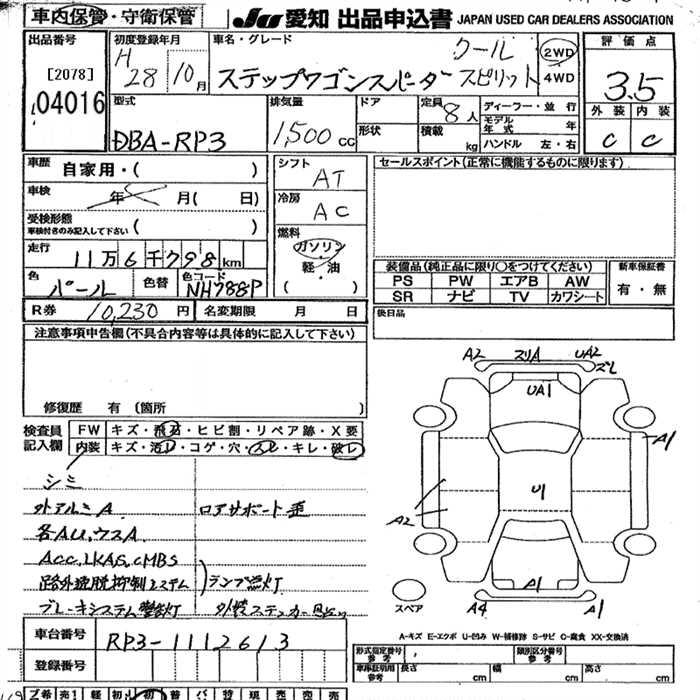 車内保管・守衛保管 JU 愛知 出品申込書 JAPAN USED CAR DEALERS ASSOCIATION
出品番号 初度登録年月 車名・グレード 評価点
[2078] H 28 10月 ステップワゴンスパーダ クール スピリット 2WD 4WD 3.5
04016
型式 排気量 ドア 定員 8人 ディーラー・並行 外装 内装
DBA-RP3 1,500cc 形状 積載 kg モデル年式 年 C C
ハンドル 左・右
車歴 自家用・( ) シフト AT セールスポイント(正常に機能するものに限ります)
車検 年 月( 日) 冷房 AC
受検形態 車検付きのみ記入して下さい ( ) 燃料 ガソリン 軽・油 ( )
走行 11万6千798km 装備品(純正品に限り○をつけてください) 新車保証書
色 パール 色替 色コード NH788P PS PW エアB AW 有・無
SR ナビ TV カワシート
R券 10,230円 名変期限 月 日 後日品
注意事項申告欄(不具合内容等は具体的に記入して下さい)
修復歴 有 (箇所
A2 スリA UA2 スレ
UA1
A1
U1
A2
A1
A4 A1
スペア
検査員記入欄 FW キズ・飛石・ヒビ割・リペア跡・X要
内装 キズ・汚レ・コゲ・穴・スレ・キレ・破レ
シミ
外アルミA ロアサポート歪
各AU、ウスA
Acc,LKAS,CMBS
路外逸脱抑制システム ランプ点灯
ブレーキシステム警告灯 外装ステッカー
A-キズ E-エクボ U-凹み W-補修跡 S-サビ C-腐食 XX-交換済
車台番号 RP3-1112613
登録番号
形式指定番号 参考 類別区分番号 参考
車庫証明用 参考 長さ cm 幅 cm 高さ cm